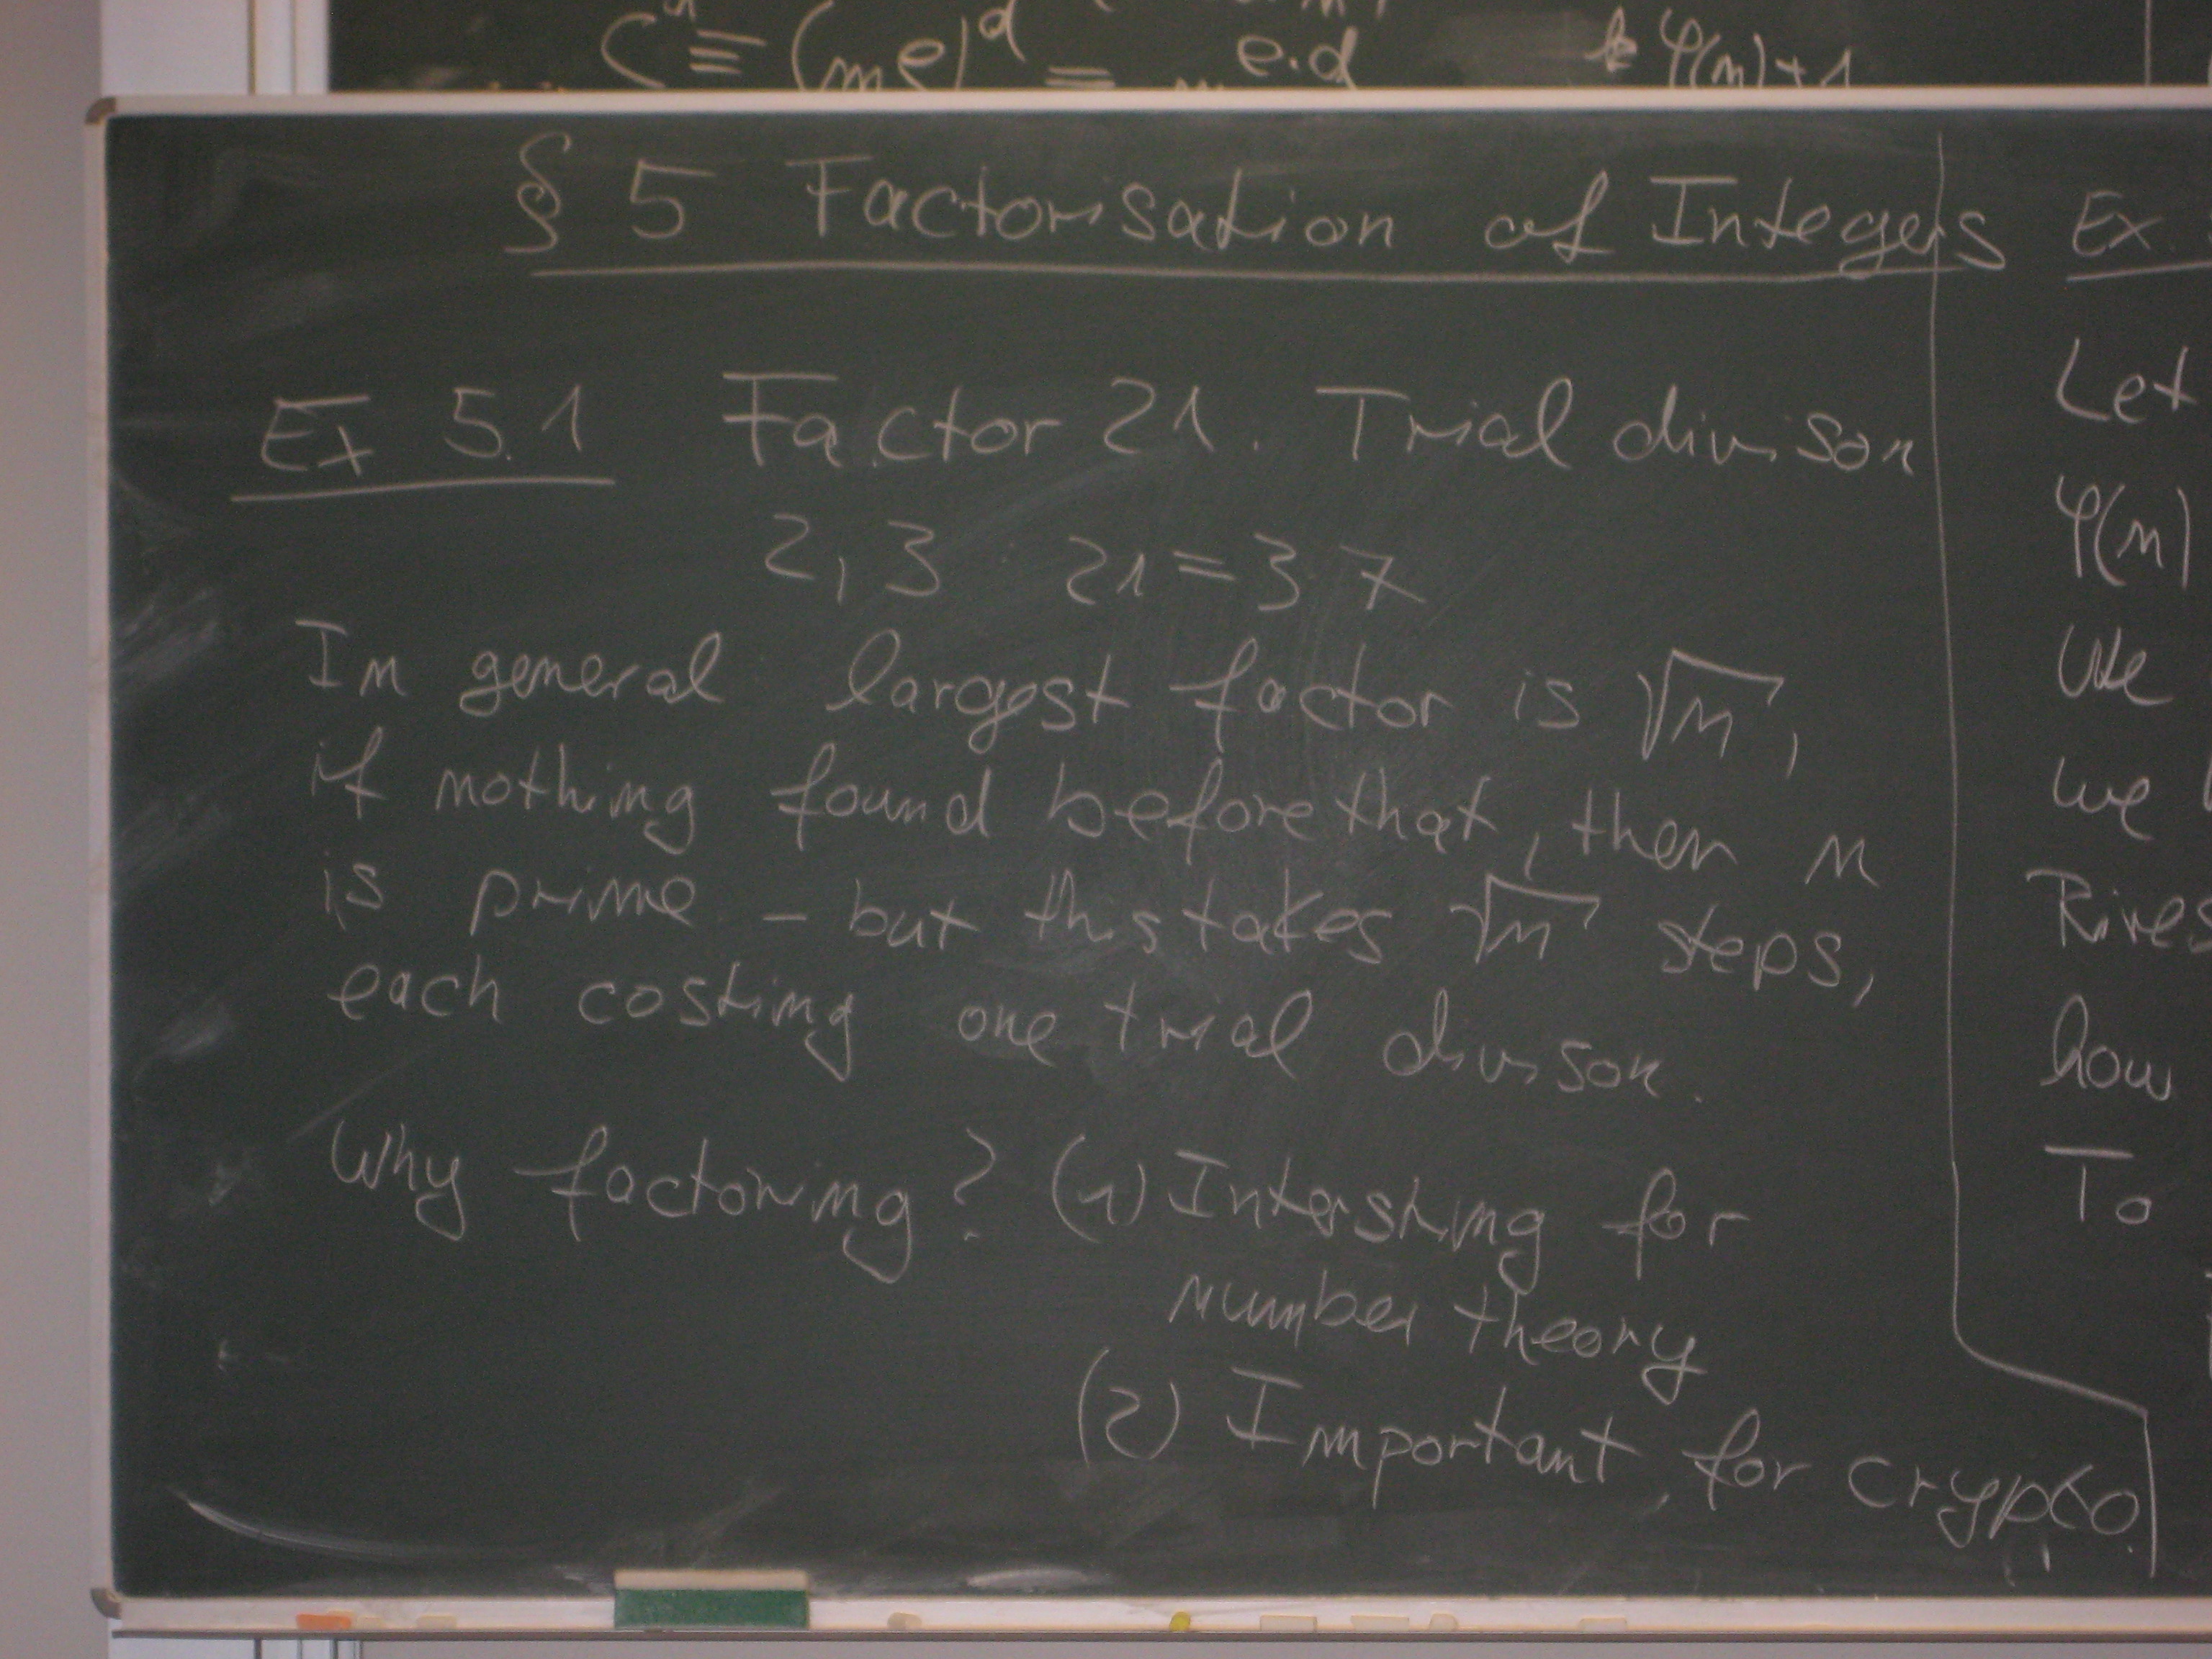 C ≡ (me)^d = m^e·d k φ(n)+1
§ 5 Factorisation of Integers
Ex 5.1 Factor 21. Trial divison
2, 3 21=3·7
In general largest factor is √n,
if nothing found before that, then n
is prime – but this takes √n steps,
each costing one trial divison.
Why factoring? (1) Intersting for
number theory
(2) Important for crypto.
Ex.
Let
φ(n)
We
we
Rives
how
To